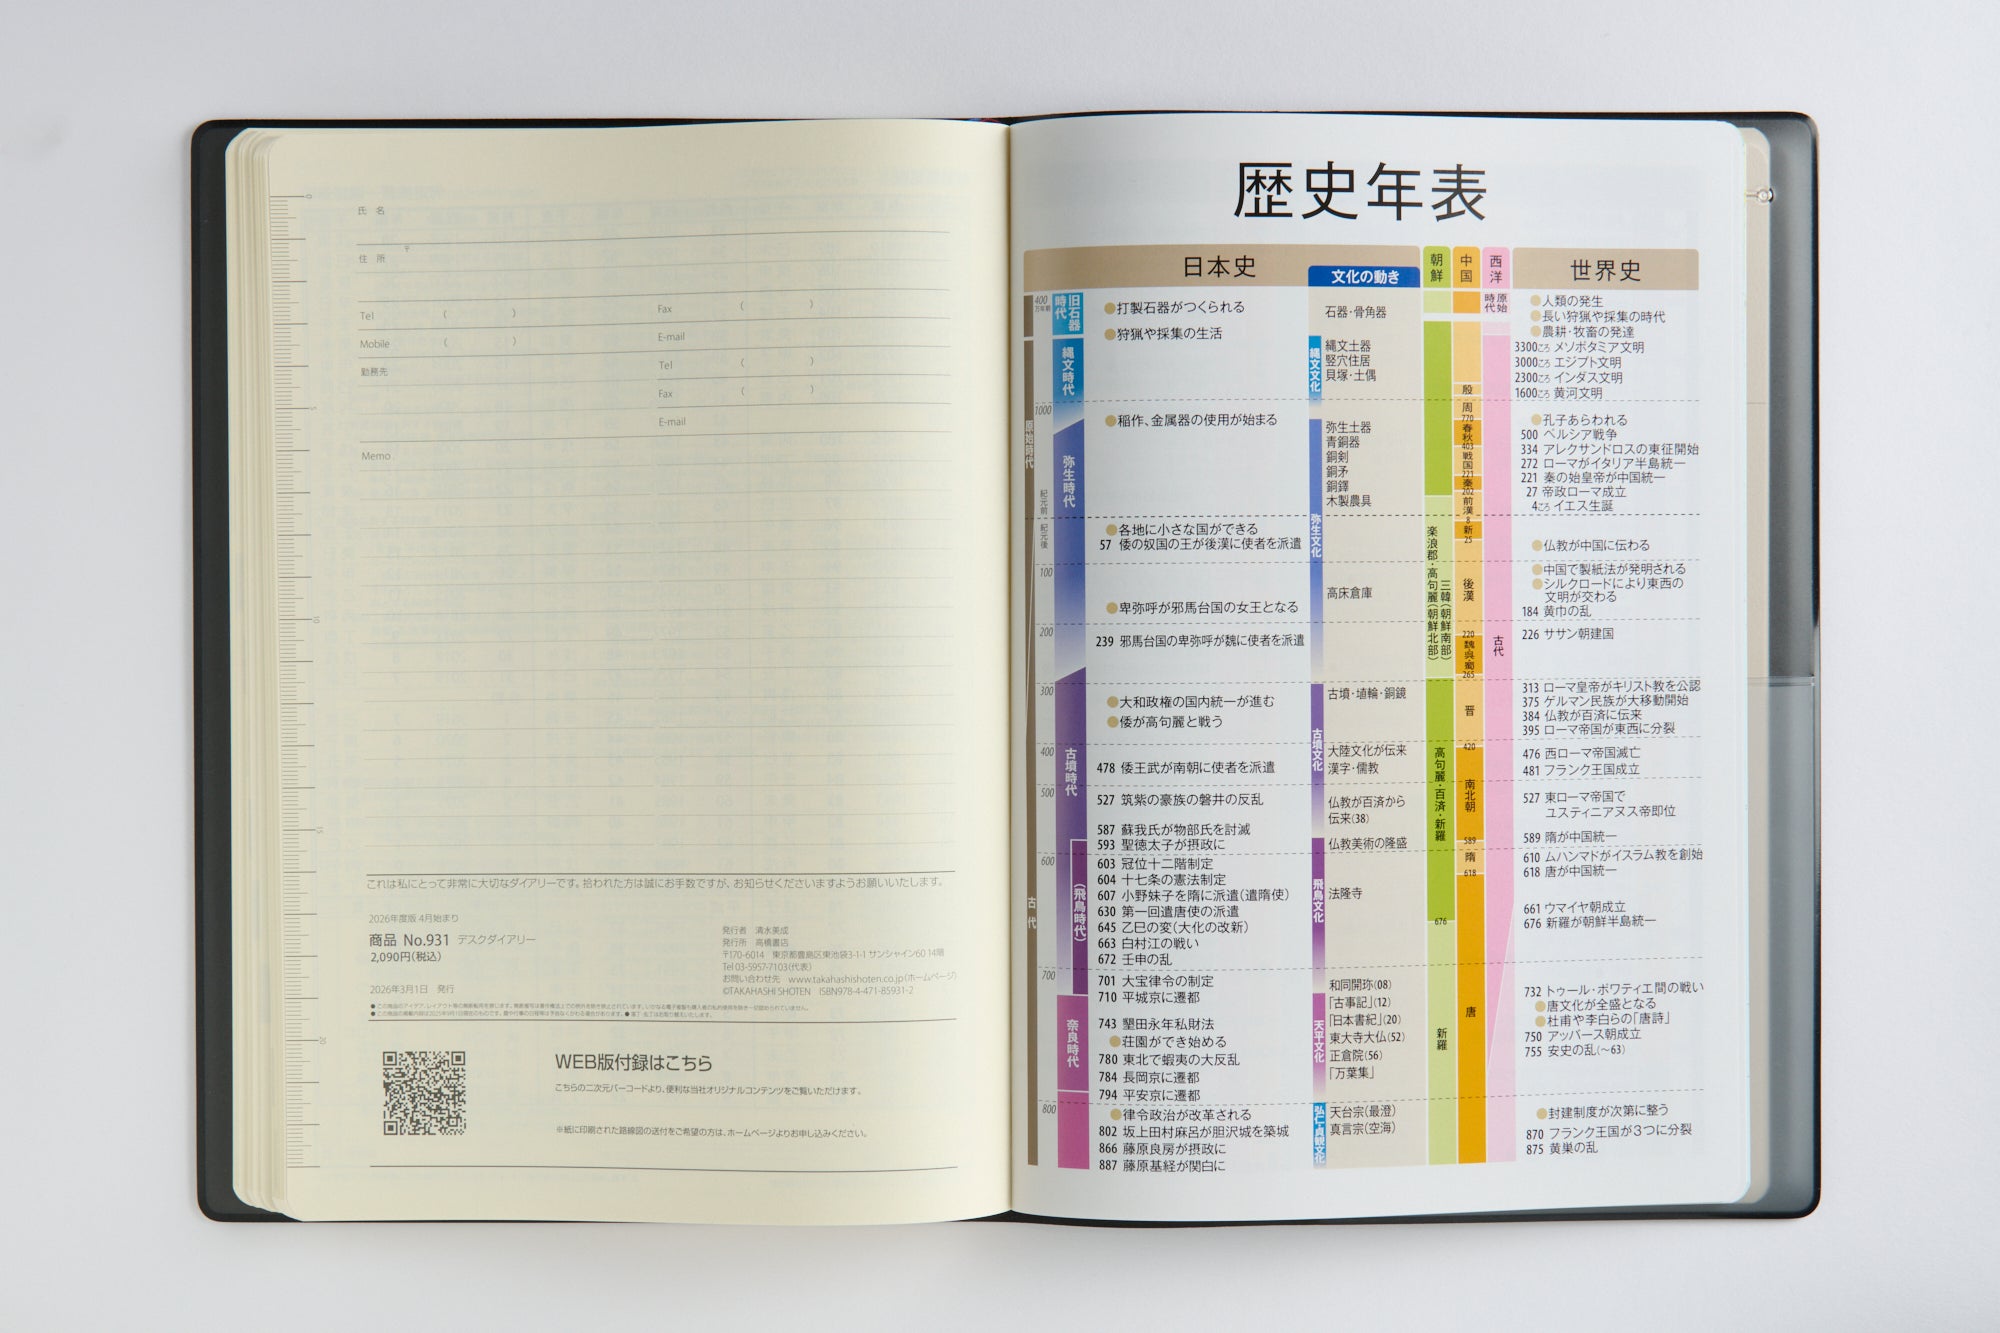 氏 名
〒
住 所
Tel ( ) Fax ( )
Mobile ( ) E-mail
勤務先 Tel ( )
Fax ( )
E-mail
Memo.
これは私にとって非常に大切なダイアリーです。拾われた方は誠にお手数ですが、お知らせくださいますようお願いいたします。
2026年度版 4月始まり
商品 No.931 デスクダイアリー
2,090円(税込)
2026年3月1日 発行
発行者 清水美成
発行所 高橋書店
〒170-6014 東京都豊島区東池袋3-1-1 サンシャイン60 14階
Tel 03-5957-7103(代表)
お問い合わせ先 www.takahashishoten.co.jp(ホームページ)
©TAKAHASHI SHOTEN ISBN978-4-471-85931-2
WEB版付録はこちら
こちらの二次元バーコードより、便利な当社オリジナルコンテンツをご覧いただけます。
※紙に印刷された路線図の送付をご希望の方は、ホームページよりお申し込みください。
0
5
10
15
20
歴史年表
日本史
文化の動き
朝鮮
中国
西洋
世界史
400万年前
1000
紀元前
紀元後
100
200
300
400
500
600
700
800
原始時代
古代
旧石器時代
縄文時代
弥生時代
古墳時代
(飛鳥時代)
奈良時代
●打製石器がつくられる
●狩猟や採集の生活
●稲作、金属器の使用が始まる
●各地に小さな国ができる
57 倭の奴国の王が後漢に使者を派遣
●卑弥呼が邪馬台国の女王となる
239 邪馬台国の卑弥呼が魏に使者を派遣
●大和政権の国内統一が進む
●倭が高句麗と戦う
478 倭王武が南朝に使者を派遣
527 筑紫の豪族の磐井の反乱
587 蘇我氏が物部氏を討滅
593 聖徳太子が摂政に
603 冠位十二階制定
604 十七条の憲法制定
607 小野妹子を隋に派遣(遣隋使)
630 第一回遣唐使の派遣
645 乙巳の変(大化の改新)
663 白村江の戦い
672 壬申の乱
701 大宝律令の制定
710 平城京に遷都
743 墾田永年私財法
●荘園ができ始める
780 東北で蝦夷の大反乱
784 長岡京に遷都
794 平安京に遷都
●律令政治が改革される
802 坂上田村麻呂が胆沢城を築城
866 藤原良房が摂政に
887 藤原基経が関白に
縄文文化
弥生文化
古墳文化
飛鳥文化
天平文化
弘仁・貞観文化
石器・骨角器
縄文土器
竪穴住居
貝塚・土偶
弥生土器
青銅器
銅剣
銅矛
銅鐸
木製農具
高床倉庫
古墳・埴輪・銅鏡
大陸文化が伝来
漢字・儒教
仏教が百済から
伝来(38)
仏教美術の隆盛
法隆寺
和同開珎(08)
「古事記」(12)
「日本書紀」(20)
東大寺大仏(52)
正倉院(56)
「万葉集」
天台宗(最澄)
真言宗(空海)
楽浪郡・高句麗(朝鮮北部)
三韓(朝鮮南部)
高句麗・百済・新羅
676
新羅
殷
周
770
春秋
403
戦国
221
秦
202
前漢
8
新
25
後漢
220
魏呉蜀
265
晋
420
南北朝
589
隋
618
唐
原始時代
古代
●人類の発生
●長い狩猟や採集の時代
●農耕・牧畜の発達
3300ころ メソポタミア文明
3000ころ エジプト文明
2300ころ インダス文明
1600ころ 黄河文明
●孔子あらわれる
500 ペルシア戦争
334 アレクサンドロスの東征開始
272 ローマがイタリア半島統一
221 秦の始皇帝が中国統一
27 帝政ローマ成立
4ころ イエス生誕
●仏教が中国に伝わる
●中国で製紙法が発明される
●シルクロードにより東西の
文明が交わる
184 黄巾の乱
226 ササン朝建国
313 ローマ皇帝がキリスト教を公認
375 ゲルマン民族が大移動開始
384 仏教が百済に伝来
395 ローマ帝国が東西に分裂
476 西ローマ帝国滅亡
481 フランク王国成立
527 東ローマ帝国で
ユスティニアヌス帝即位
589 隋が中国統一
610 ムハンマドがイスラム教を創始
618 唐が中国統一
661 ウマイヤ朝成立
676 新羅が朝鮮半島統一
732 トゥール・ポワティエ間の戦い
●唐文化が全盛となる
●杜甫や李白らの「唐詩」
750 アッバース朝成立
755 安史の乱(〜63)
●封建制度が次第に整う
870 フランク王国が3つに分裂
875 黄巣の乱